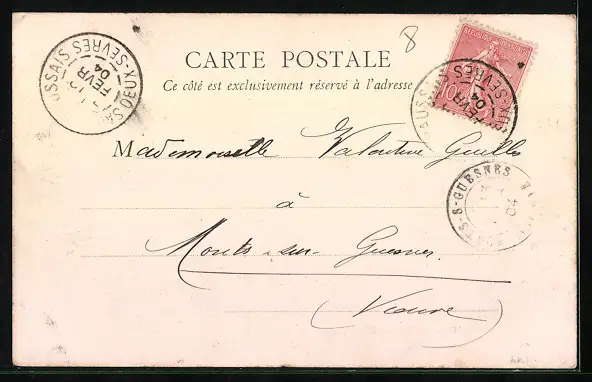 8
CARTE POSTALE
Ce côté est exclusivement réservé à l'adresse
RÉPUBLIQUE FRANÇAISE
10
SAUSSAIS
DEUX-SÈVRES
12
FEVR
04
SÈVRES
FEVR
04
Mademoiselle Valentine Guilles
à
Monts-sur-Guesnes
(Vienne)
MONTS-S-GUESNES
04